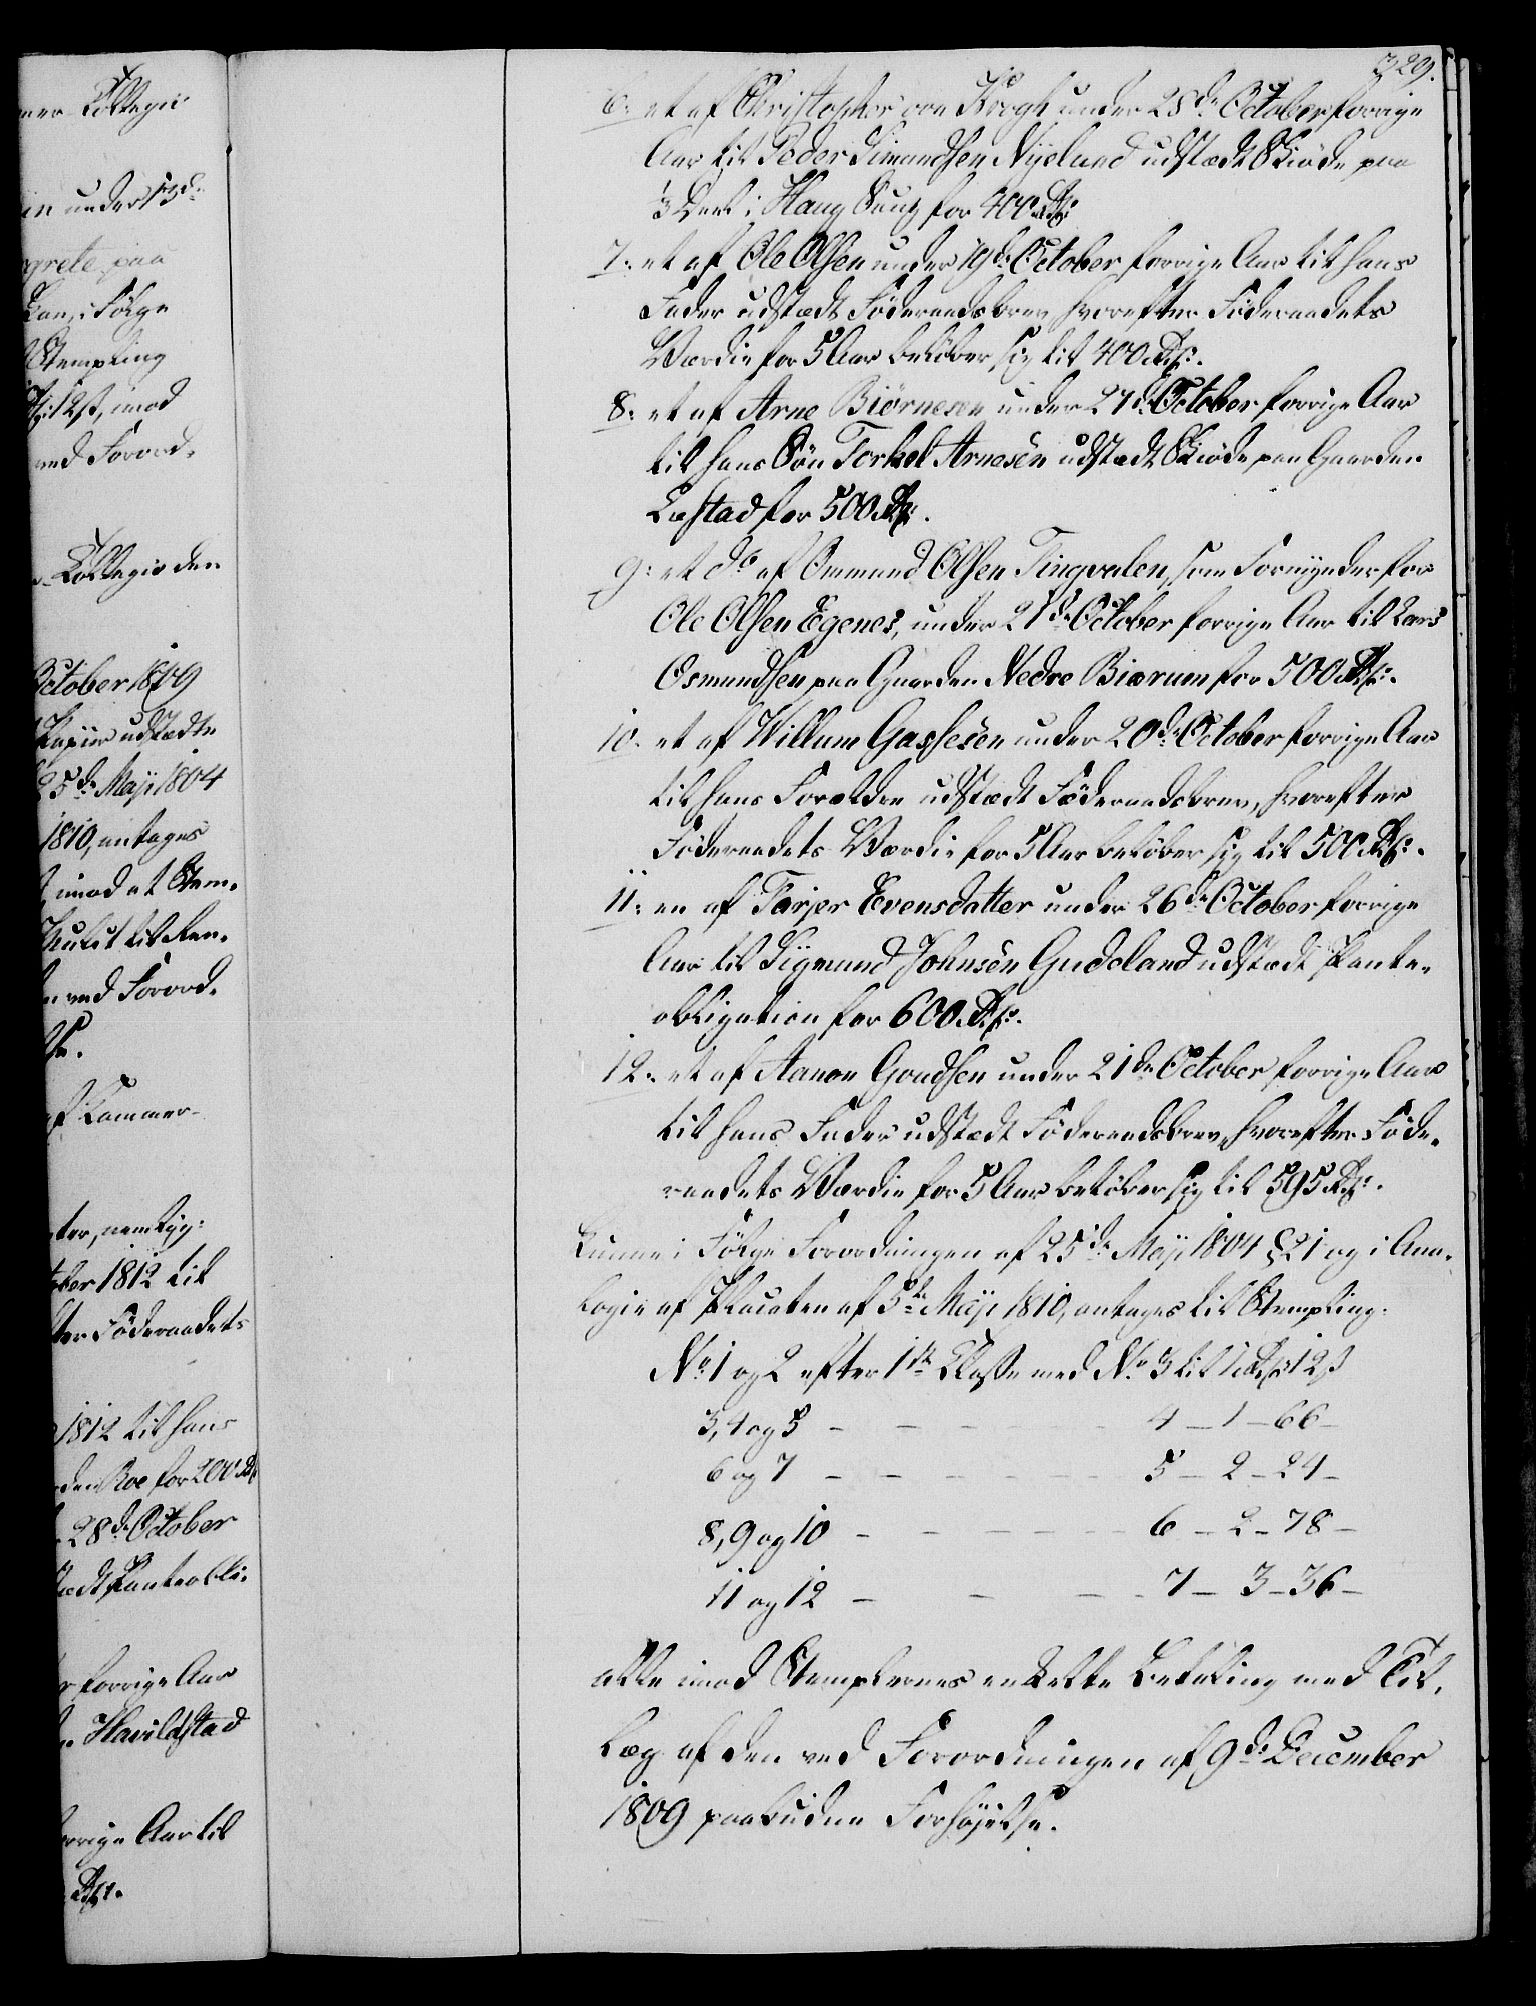 mer Collegii
in under 13de
grete paa
Kan, i Følge
Stempling
12 ß, imod
ved Forord-
Collegie den
October 1809
Papiir udstædte
25de Maji 1804
1810, antages
imod at Stem-
ved Forord-
af Kammer-
ter, nemlig:
tober 1812 til
ter Föderaadets
1812 til hans
den Roe for 200 Rd
28de October
tædt Panteobli-
r forrige Aar
Havildstad
orrige Aar til
Rd.
329.
6. et af Christopher von Krogh under 28de October forrige
Aar til Peder Simondsen Nyelund udstædt Skiøde paa
1/3 Deel i Haug Saug for 400 Rd.
7. et af Ole Olsen under 19de October forrige Aar til hans
Fader udstædt Föderaadsbrev, hvorefter Föderaadets
Værdie for 5 Aar beløber sig til 400 Rd.
8. et af Arne Biørnesen under 27de October forrige Aar
til hans Søn Torkel Arnesen udstædt Skiøde paa Gaarden
Lastad for 500 Rd.
9. et do af Ommund Olsen Tingvalen, som Formynder for
Ole Olsen Egenes, under 21de October forrige Aar til Lars
Osmundsen paa Gaarden Nedre Biærum for 500 Rd.
10. et af Willum Gassesen under 20de October forrige Aar
til hans Forældre udstædt Föderaadsbrev, hvorefter
Föderaadets Værdie for 5 Aar beløber sig til 500 Rd.
11. en af Tarjer Evensdatter under 26de October forrige
Aar til Sigmund Johnsen Gudeland udstædt Pante-
obligation for 600 Rd.
12. et af Aanon Goudsen under 21de October forrige Aar
til hans Fader udstædt Föderaadsbrev, hvorefter Föde-
raadets Værdie for 5 Aar beløber sig til 595 Rd.
kunne i Følge Forordningen af 25de Maji 1804 § 21 og i Ana-
logie af Placaten af 5te Maji 1810, antages til Stempling:
No 1 og 2 efter 1ste Classe med No 3 til 1 Rd 12 ß
3, 4 og 5 – – – – – 4 – 1 – 66 –
6 og 7 – – – – – 5 – 2 – 24 –
8, 9 og 10 – – – – – 6 – 2 – 78 –
11 og 12 – – – – 7 – 3 – 36 –
alle imod Stemplernes enkelte Betaling med Til-
læg af den ved Forordningen af 9de December
1809 paabudne Forhøjelse.